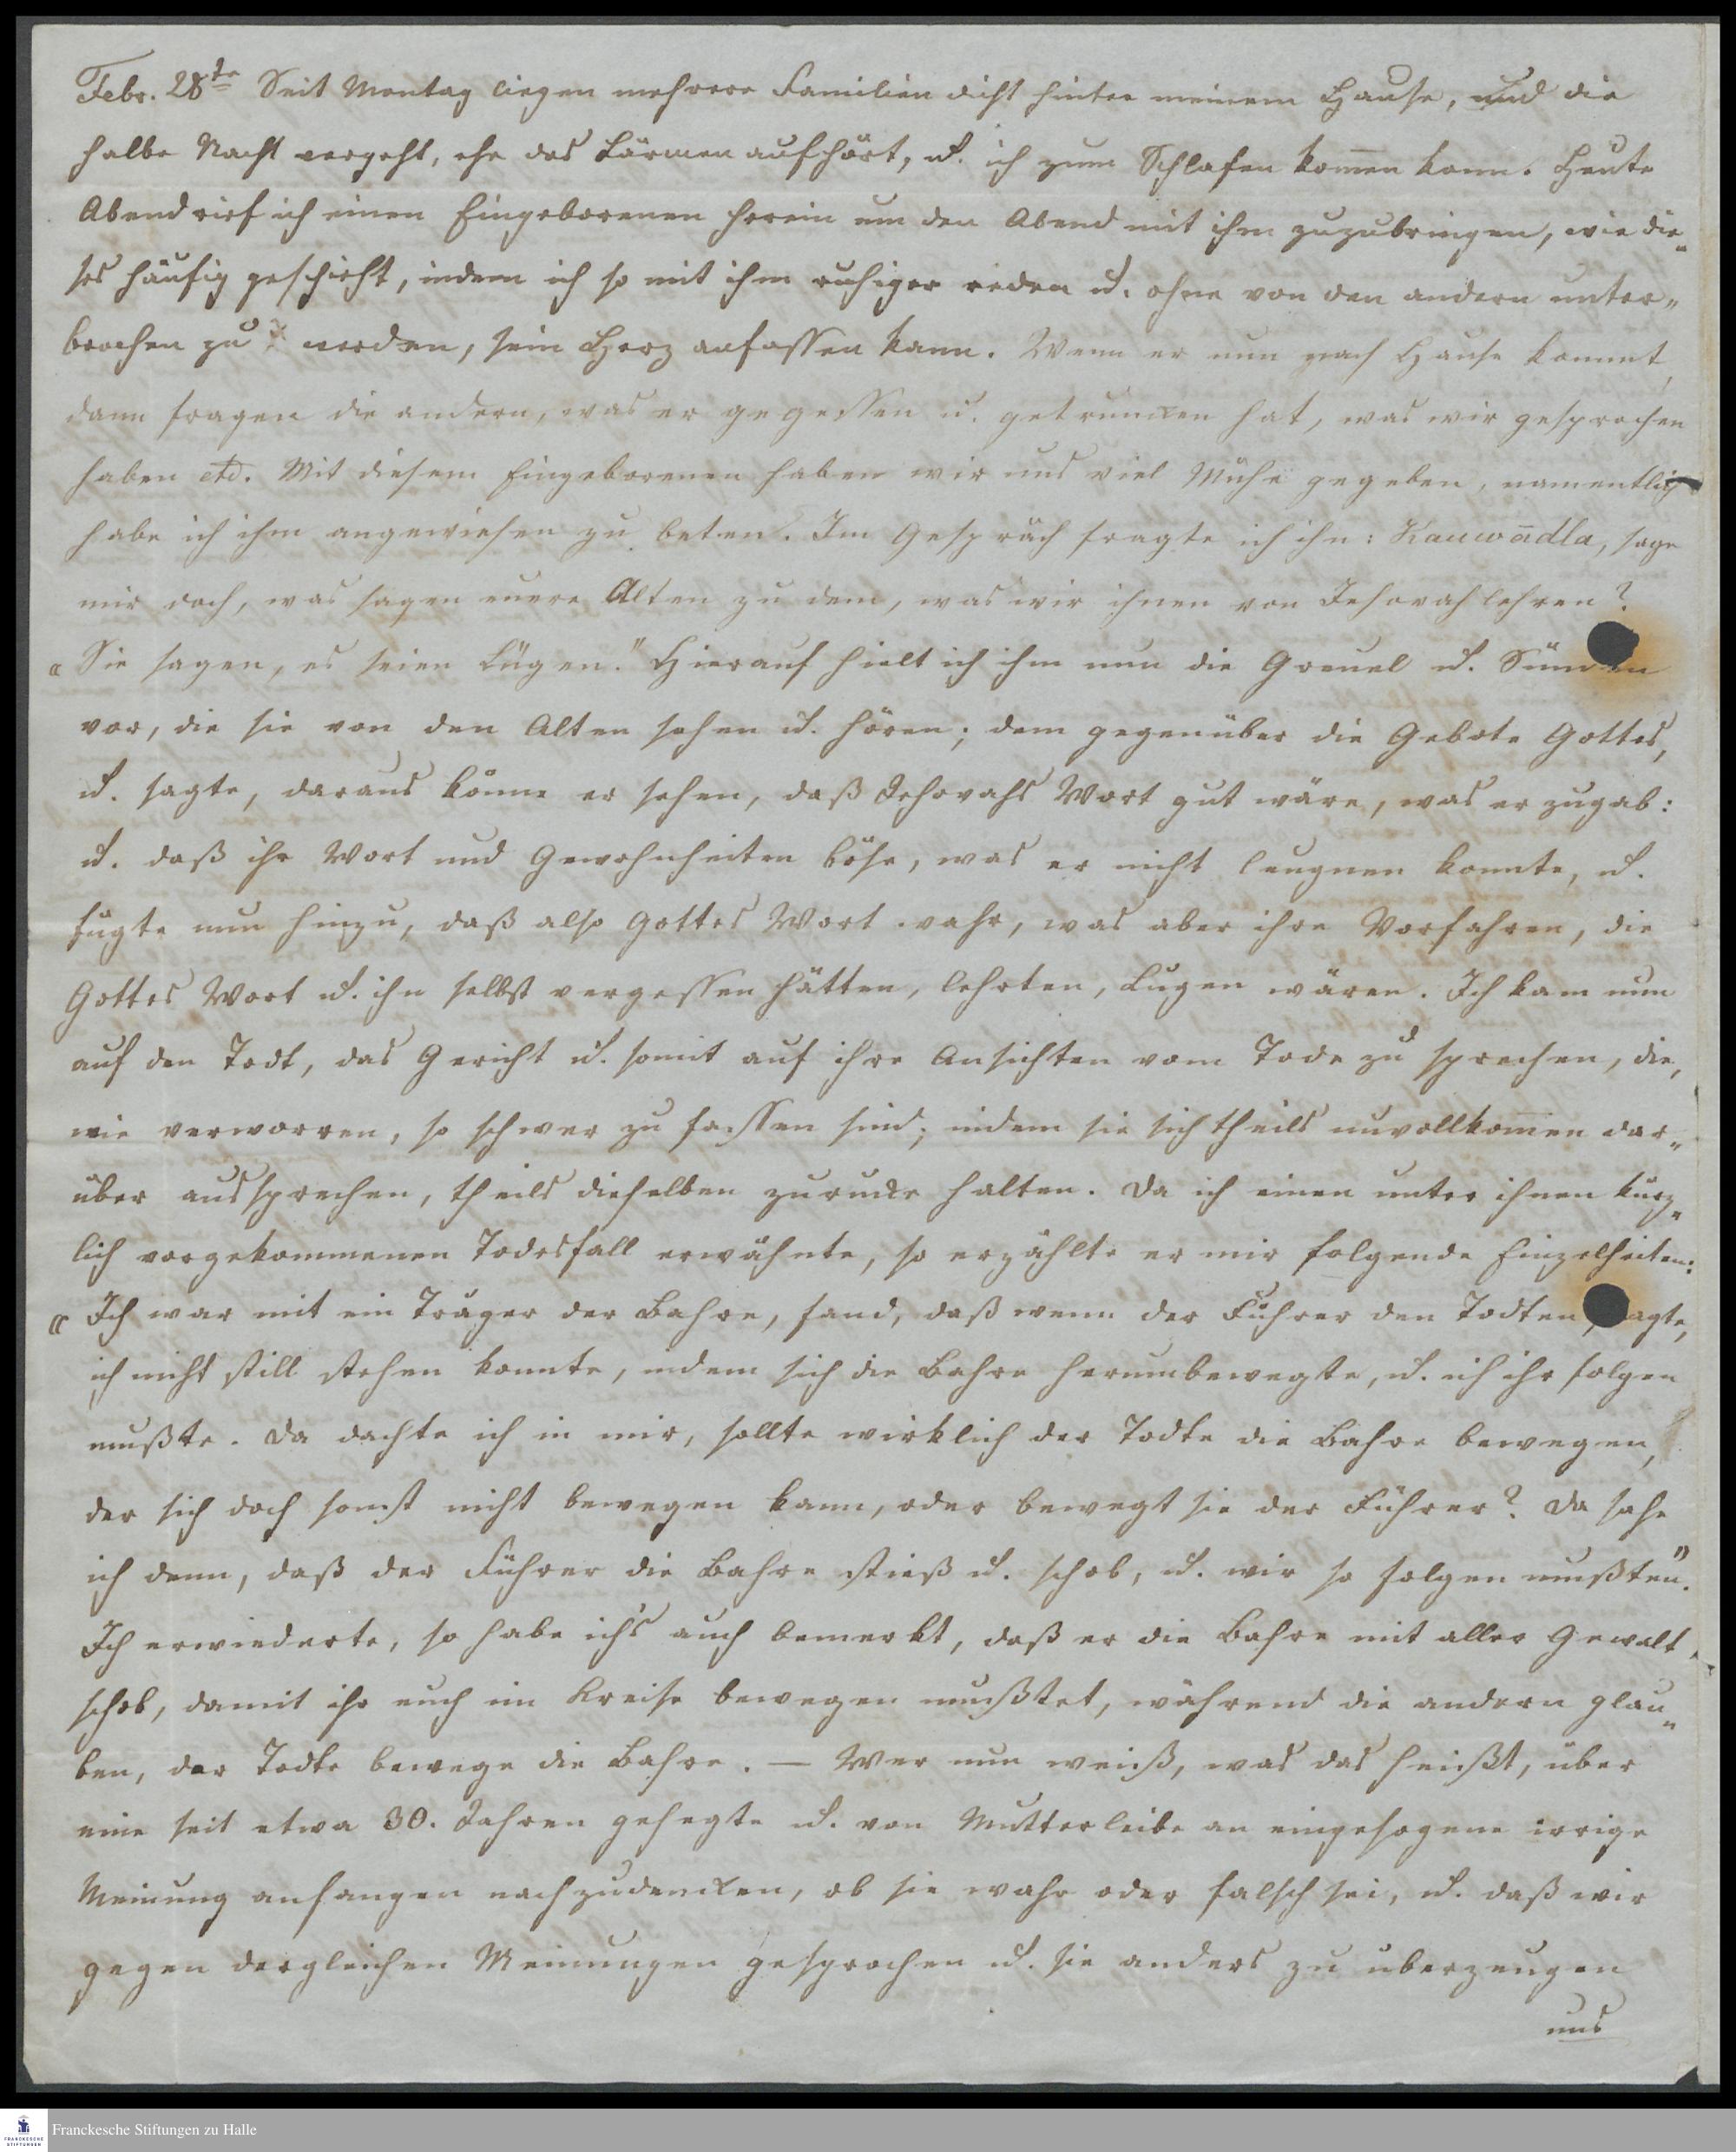 Febr. 28te Seit Montag liegen mehrere Familien dicht hinter meinem Hause, und die
halbe Nacht vergeht, ehe das Lärmen aufhört, u. ich zum Schlafen kom̅en kann. Heute
Abend rief ich einen Eingeborenen herein um den Abend mit ihm zuzubringen, wie die„
ses häufig geschieht, indem ich so mit ihm ruhiger reden u. ohne von den andern unter„
brochen zu werden, sein Herz anfassen kann. Wenn er nun nach Hause kommt,
dann fragen die andern, was er gegessen u. getruncken hat, was wir gesprochen
haben etc. Mit diesem Eingeborenen haben wir uns viel Mühe gegeben, namentlich
habe ich ihm angewiesen zu beten. Im Gespräch fragte ich ihn: Kauwadla, sage
mir doch, was sagen euere Alten zu dem, was wir ihnen von Jehovah lehren?
„Sie sagen, es seien Lügen." Hierauf hielt ich ihm nun die Greuel u. Sünden
vor, die sie von den Alten sehen u. hören; dem gegenüber die Gebote Gottes,
u. sagte, daraus könne er sehen, daß Jehovahs Wort gut wäre, was er zugab:
u. daß ihr Wort und Gewohnheiten böse, was er nicht leugnen konnte, u.
fügte nun hinzu, daß also Gottes Wort wahr, was aber ihre Vorfahren, die
Gottes Wort u. ihn selbst vergessen hätten, lehrten, Lugen wären. Ich kam nun
auf den Todt, das Gericht u. somit auf ihre Ansichten vom Tode zu sprechen, die,
wie verworren, so schwer zu fassen sind; indem sie sich theils unvollkom̅en dar„
über aussprechen, theils dieselben zurucke halten. Da ich einen unter ihnen kürz„
lich vorgekommenen Todesfall erwähnte, so erzählte er mir folgende Einzelheiten:
„Ich war mit ein Träger der Bahre, fand, daß wenn der Führer den Todten fragte,
ich nicht still stehen konnte, indem sich die Bahre herumbewegte, u. ich ihr folgen
mußte. Da dachte ich in mir, sollte wirklich der Todte die Bahre bewegen,
der sich doch sonst nicht bewegen kann, oder bewegt sie der Führer? Da sahe
ich denn, daß der Führer die Bahre stieß u. schob, u. wir so folgen mußten".
Ich erwiederte, so habe ich's auch bemerkt, daß er die Bahre mit aller Gewalt
schob, damit ihr euch im Kreise bewegen mußtet, während die andern glau„
ben, der Todte bewege die Bahre. — Wer nun weiß, was das heißt, über
eine seit etwa 30. Jahren gehegte u. von Mutterleibe an eingesogene irrige
Meinung anfangen nachzudencken, ob sie wahr oder falsch sei, u. daß wir
gegen dergleichen Meinungen gesprochen u. sie anders zu überzeugen
uns
Franckesche Stiftungen zu Halle